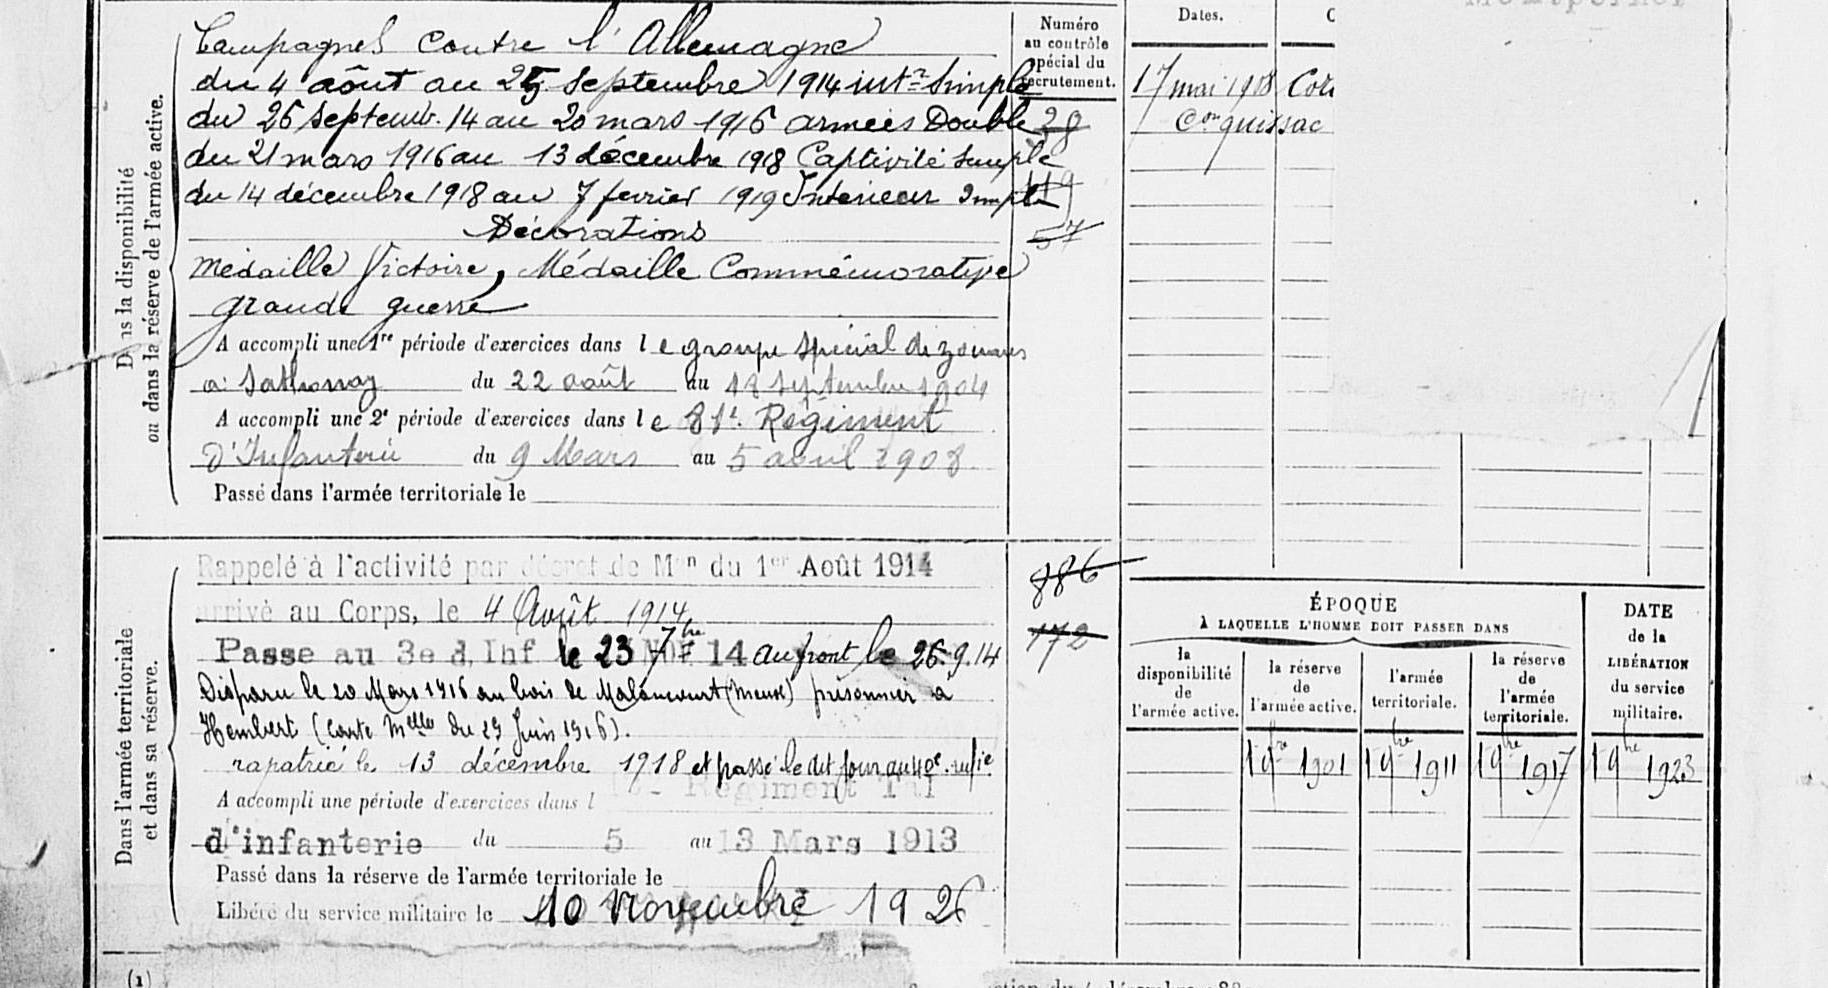 Campagnes contre l'Allemagne
du 4 août au 25 septembre 1914 intr simple
du 26 septemb. 14 au 20 mars 1916 armées Double
du 21 mars 1916 au 13 décembre 1918 Captivité simple
du 14 décembre 1918 au 7 fevrier 1919 Interieur simple
Décorations
Médaille Victoire, Médaille Commémorative
grande guerre
A accompli une 1re période d'exercices dans le groupe spécial de zouaves
à Sathonay du 22 août au 18 septembre 1904
A accompli une 2e période d'exercices dans le 81e Régiment
d'Infanterie du 9 Mars au 5 avril 1908.
Passé dans l'armée territoriale le
Dans la disponibilité
ou dans la réserve de l'armée active.
Numéro
au contrôle
spécial du
recrutement.
28
119
57
Dates.
C
17 mai 1908 Con
Con quissac
Rappelé à l'activité par décret de Mon du 1er Août 1914
arrivé au Corps, le 4 Août 1914
Passe au 3e d, Inf le 23 7bre 14 au front le 26.9.14
Disparu le 20 Mars 1916 au bois de Malancourt (Meuse) prisonnier à
(carte Melle du 29 Juin 1916).
rapatrié le 13 décembre 1918 et passé le dit jour au 40e
A accompli une période d'exercices dans l Régiment Tal
d'infanterie du 5 au 13 Mars 1913
Passé dans la réserve de l'armée territoriale le
Libéré du service militaire le 10 Novembre 1926
Dans l'armée territoriale
et dans sa réserve.
886
172
ÉPOQUE
À LAQUELLE L'HOMME DOIT PASSER DANS
la disponibilité de l'armée active.
la réserve de l'armée active.
l'armée territoriale.
la réserve de l'armée territoriale.
DATE de la LIBÉRATION du service militaire.
1 9bre 1901 1 9bre 1911 1 9bre 1917 1 9bre 1923
(1)